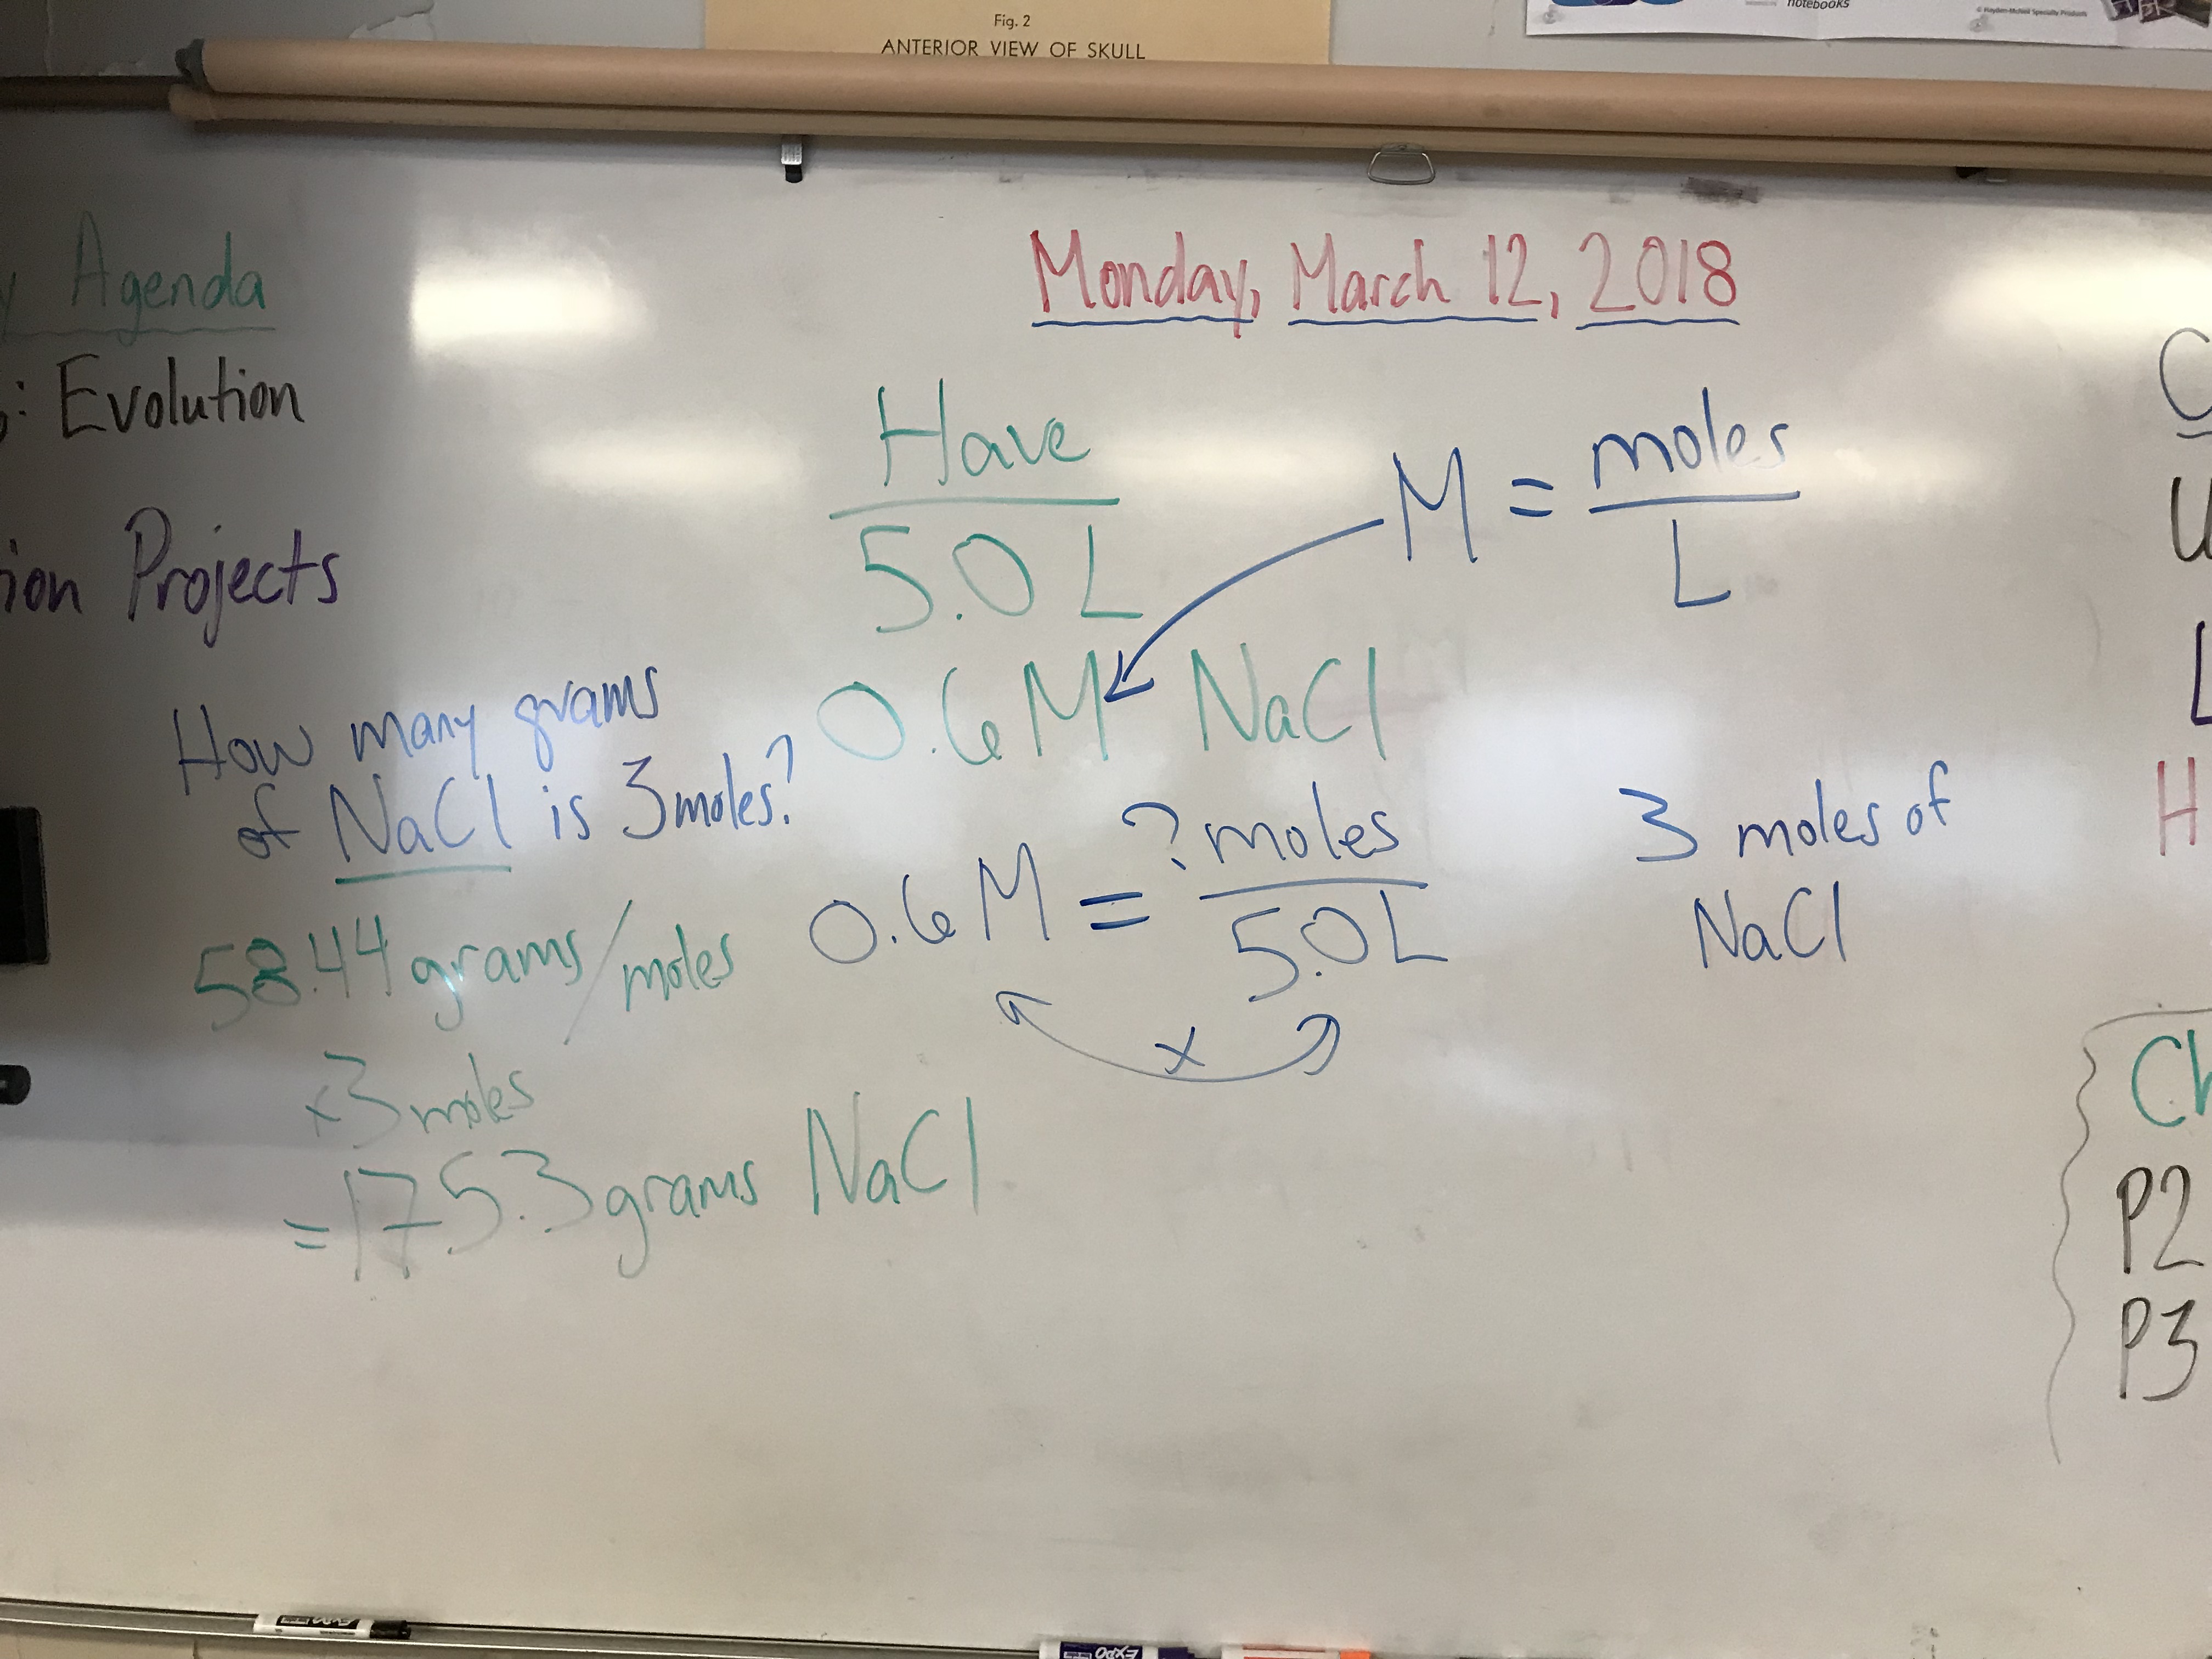 Fig. 2
ANTERIOR VIEW OF SKULL
notebooks
© Hayden-McNeil Specialty Products
Agenda
: Evolution
ion Projects
Monday, March 12, 2018
Have
5.0 L
0.6M NaCl
M = moles
L
How many grams
of NaCl is 3 moles?
58.44 grams/moles
x3 moles
=175.3 grams NaCl
0.6M = ? moles
5.0L
x
3 moles of
NaCl
H
Ch
P2
P3
EXPO